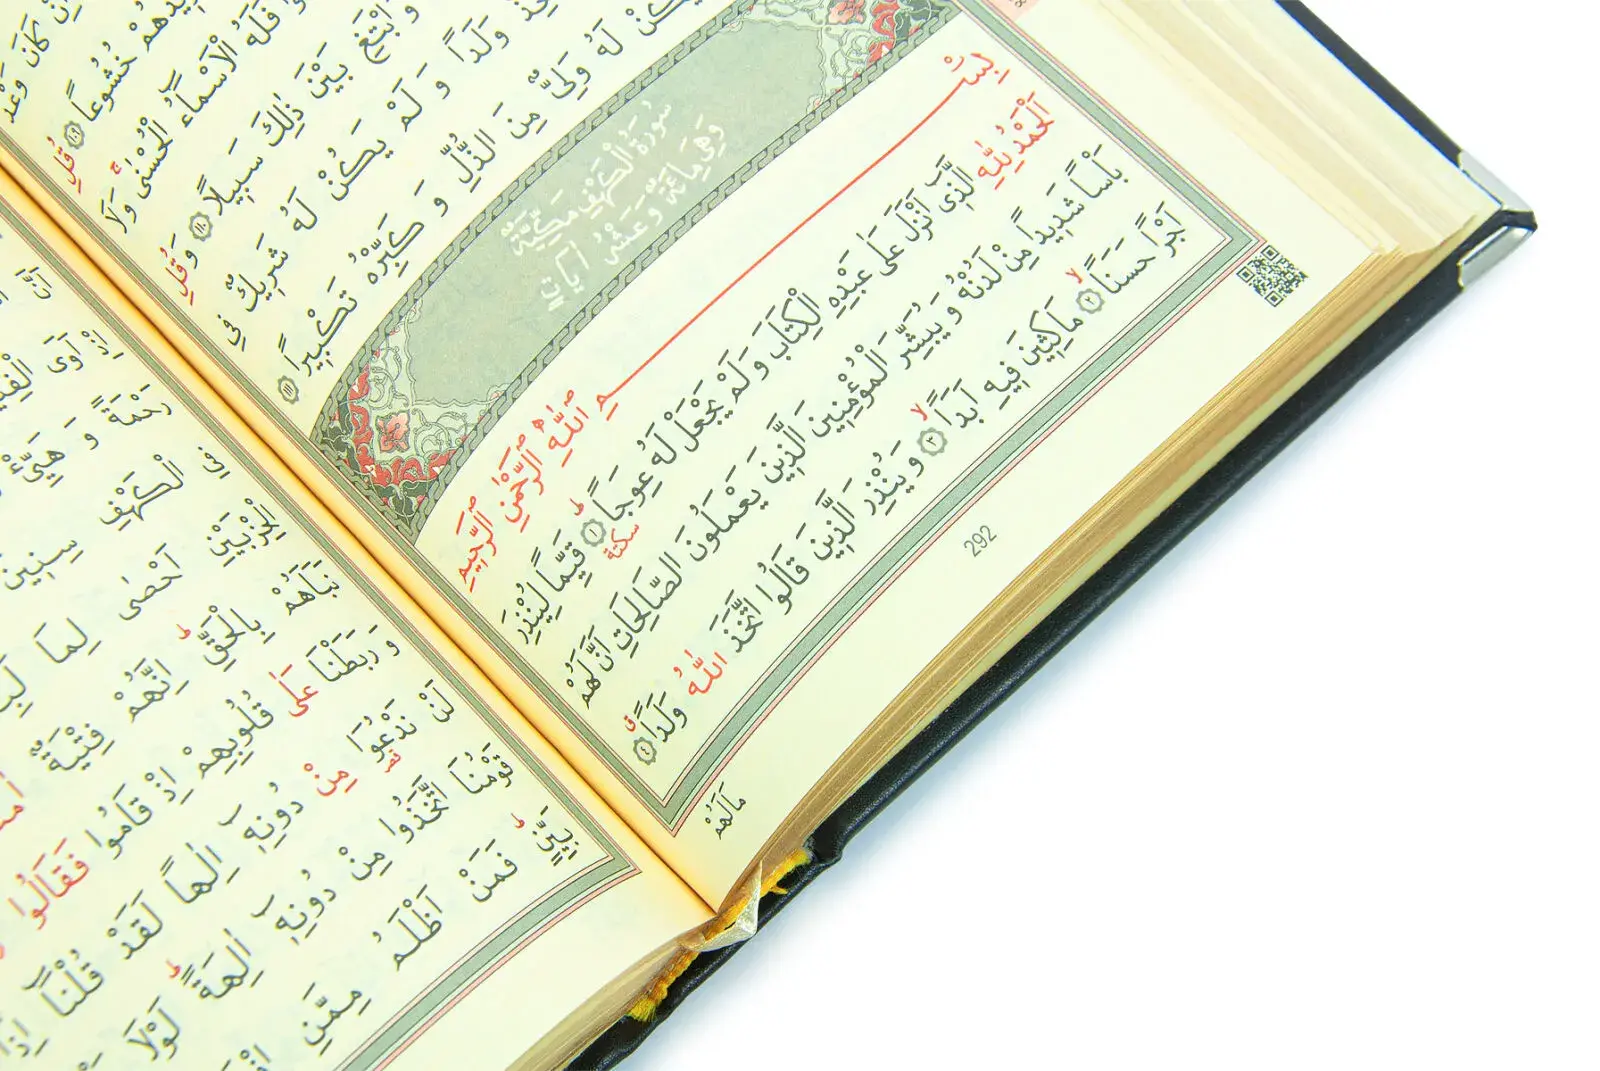 اِنْ كَانَ وَعْدُ
خُشُوعاً ﴿١٠٩﴾ قُلِ
فَلَهُ الْاَسْمَٓاءُ الْحُسْنٰىۚ وَلَا
وَابْتَغِ بَيْنَ ذٰلِكَ سَب۪يلاً ﴿١١٠﴾ وَقُلِ
وَلَداً وَلَمْ يَكُنْ لَهُ شَر۪يكٌ فِي
يَكُنْ لَهُ وَلِيٌّ مِنَ الذُّلِّ وَكَبِّرْهُ تَكْب۪يراً ﴿١١١﴾
سُورَةُ الْكَهْفِ مَكِّيَّةٌ
وَهِيَ مِائَةٌ وَعَشْرُ اٰيَاتٍ
بِسْمِ اللّٰهِ الرَّحْمٰنِ الرَّح۪يمِ
اَلْحَمْدُ لِلّٰهِ الَّذ۪ٓي اَنْزَلَ عَلٰى عَبْدِهِ الْكِتَابَ وَلَمْ يَجْعَلْ لَهُ عِوَجاًۜ ﴿١﴾ سكتة قَيِّماً لِيُنْذِرَ
بَأْساً شَد۪يداً مِنْ لَدُنْهُ وَيُبَشِّرَ الْمُؤْمِن۪ينَ الَّذ۪ينَ يَعْمَلُونَ الصَّالِحَاتِ اَنَّ لَهُمْ
اَجْراً حَسَناًۙ ﴿٢﴾ مَاكِث۪ينَ ف۪يهِ اَبَداًۙ ﴿٣﴾ وَيُنْذِرَ الَّذ۪ينَ قَالُوا اتَّخَذَ اللّٰهُ وَلَداًۗ ﴿٤﴾
مَالَهُمْ
292
اِذْ اَوَى
رَحْمَةً وَهَيِّئْ
الْكَهْفِ سِن۪ينَ
الْحِزْبَيْنِ اَحْصٰى لِمَا
نَبَاَهُمْ بِالْحَقِّۜ اِنَّهُمْ فِتْيَةٌ
وَرَبَطْنَا عَلٰى قُلُوبِهِمْ اِذْ قَامُوا فَقَالُوا
لَنْ نَدْعُوَ۬ا مِنْ دُونِه۪ٓ اِلٰهاً لَقَدْ قُلْنَٓا اِذاً
قَوْمُنَا اتَّخَذُوا مِنْ دُونِه۪ٓ اٰلِهَةًۜ لَوْلَا
بَيِّنٍۜ فَمَنْ اَظْلَمُ مِمَّنِ